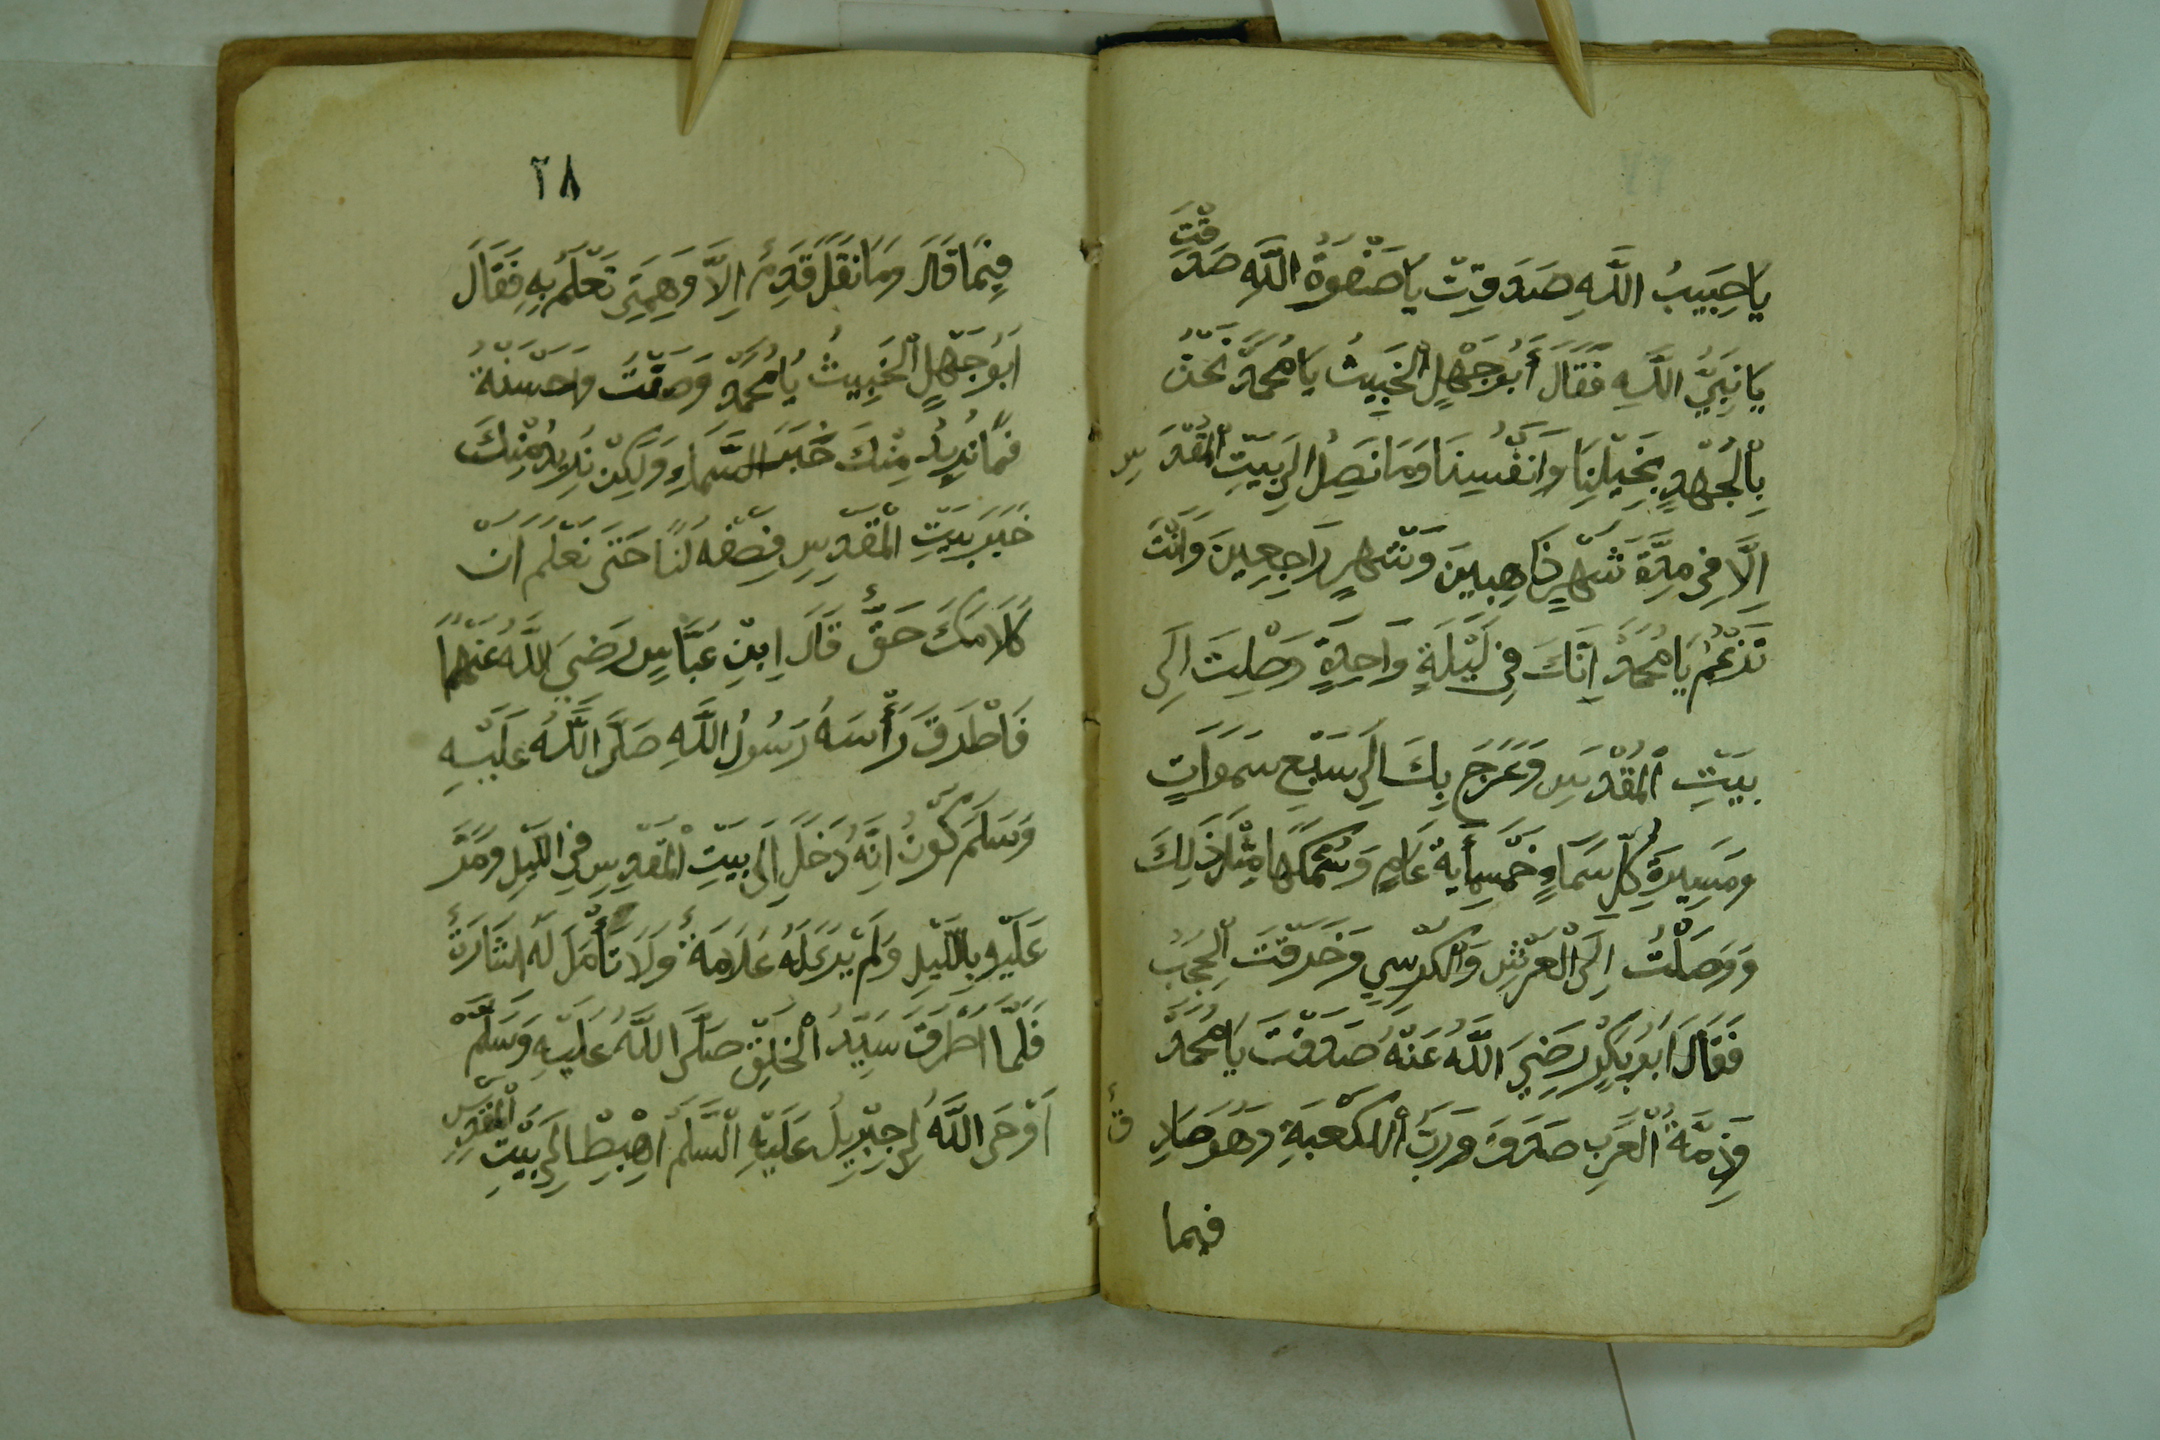 يَا حَبِيبُ اللَّهِ صَدَقْتَ يَا صَفْوَةُ اللَّهِ صَدَقْتَ
يَا نَبِيَّ اللَّهِ فَقَالَ أَبُو جَهْلٍ الْخَبِيثُ يَا مُحَمَّدُ نَحْنُ
بِالْجُهْدِ بِخَيْلِنَا وَانْفُسِنَا وَمَا نَصِلُ الَى بَيْتِ الْمُقَدَّسِ
اِلَّا فِى مِدَّة شَهْرٍ ذَاهِبِينَ وَشَهْرٍ رَاجِعِينَ وَانْتَ
تَزْعُمْ يَا مُحَمَّدْ اِنَّكَ فِى لَيْلَةٍ وَاحِدَةٍ وَصَلِتَ اِلَى
بَيْتِ الْمُقَدَّسِ وَعَرَجَ بِكَ اِلَى سَبْعِ سَمَوَاتٍ
وَمَسِيرَةِ كُلِّ سَمَاءٍ خَمْسِمِأْيَة عَامٍ وَسُمْكُهَا مِثْلَ ذَلِكَ
وَوَصَلْتَ اِلَى الْعَرْشِ وَالْكُرْسِي وَخَرَقْتَ الْحُجُبُ
فَقَالَ اَبُو بَكْرٍ رَضِيَ اللَّهُ عَنْهُ صَدَقْتَ يَا مُحَمَّدُ
وَذِمَّةُ الْعَرَبِ صَدَقَ وَرَبُّ الْكَعْبَةِ وَهُوَ صَادِقٌ
فيما
٢٨
فِيمَا قَالَ وَمَا نَقَلَ قَدِمٌ اِلَّا وَهِمَتِى تَعْلَمُ بِهِ فَقَالَ
اَبُو جَهْلٍ الْخَبِيثُ يَا مُحَمَّدُ وَصَفْتَ وَاحْسَنْةُ
فَمَا نُرِيدُ مِنْكَ خَبَرَ السَّمَاءِ وَلَكِنْ نُرِيدُ مِنْكَ
خَبَرَ بَيْتِ الْمَقْدِسِ فَصِفْه لَنَا حَتَى نَعْلَم انْ
كَلَامَكَ حَقٌّ قَالَ اِبْنِ عَبَّاسٍ رَضِيَ اللَّهُ عَنْهُمَا
فَاطْرَقَ رَأْسَهُ رَسُولُ اللَّهِ صَلَّى اللَّهُ عَلَيْهِ
وَسَلَمَ كَوْنُ اِنَّهُ دَخَلَ اِلَى بَيْتِ الْمَقْدِسِ فِى اللَّيْلِ وَمَرَّ
عَلَيْهِ بِاللَّيْلِ وَلَمْ يَرَ لَهُ عَلَامَةٌ وَلَا تَأَمَلَ لَهُ اشَارَةٌ
فَلَمَّا اطْرَقَ سَيِّدُ الْخَلْقِ صَلَّى اللَّهُ عَلَيْهِ وَسَلَّمَ
اَوْحَى اللَّهُ لِى جِبْرِيلُ عَلَيْهِ السَّلَمْ اهْبِطْ اِلَى بَيْتِ الْمَقْدِسِ